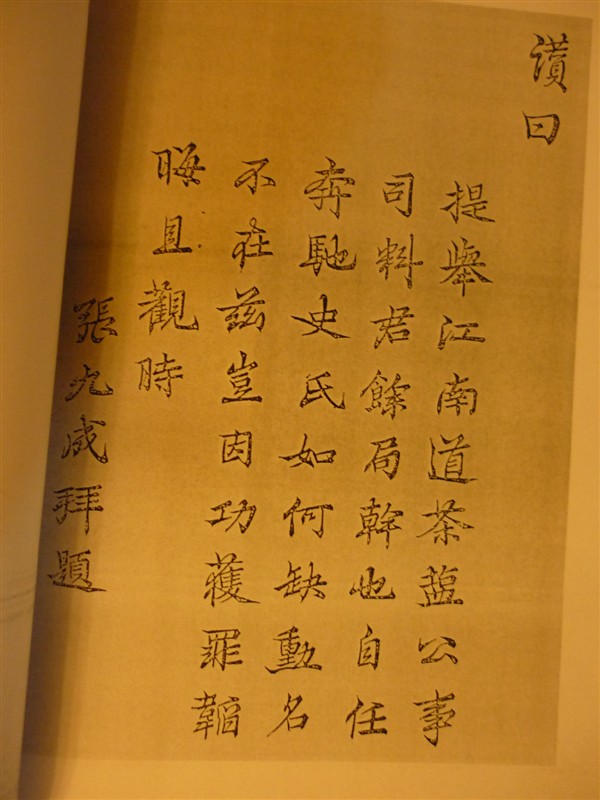 讚曰
提舉江南道茶蓝公事
司料君餘局幹也自任
奔馳史氏如何缺動名
不在兹豈因功獲罪韜
晦且觀時
張九成拜題